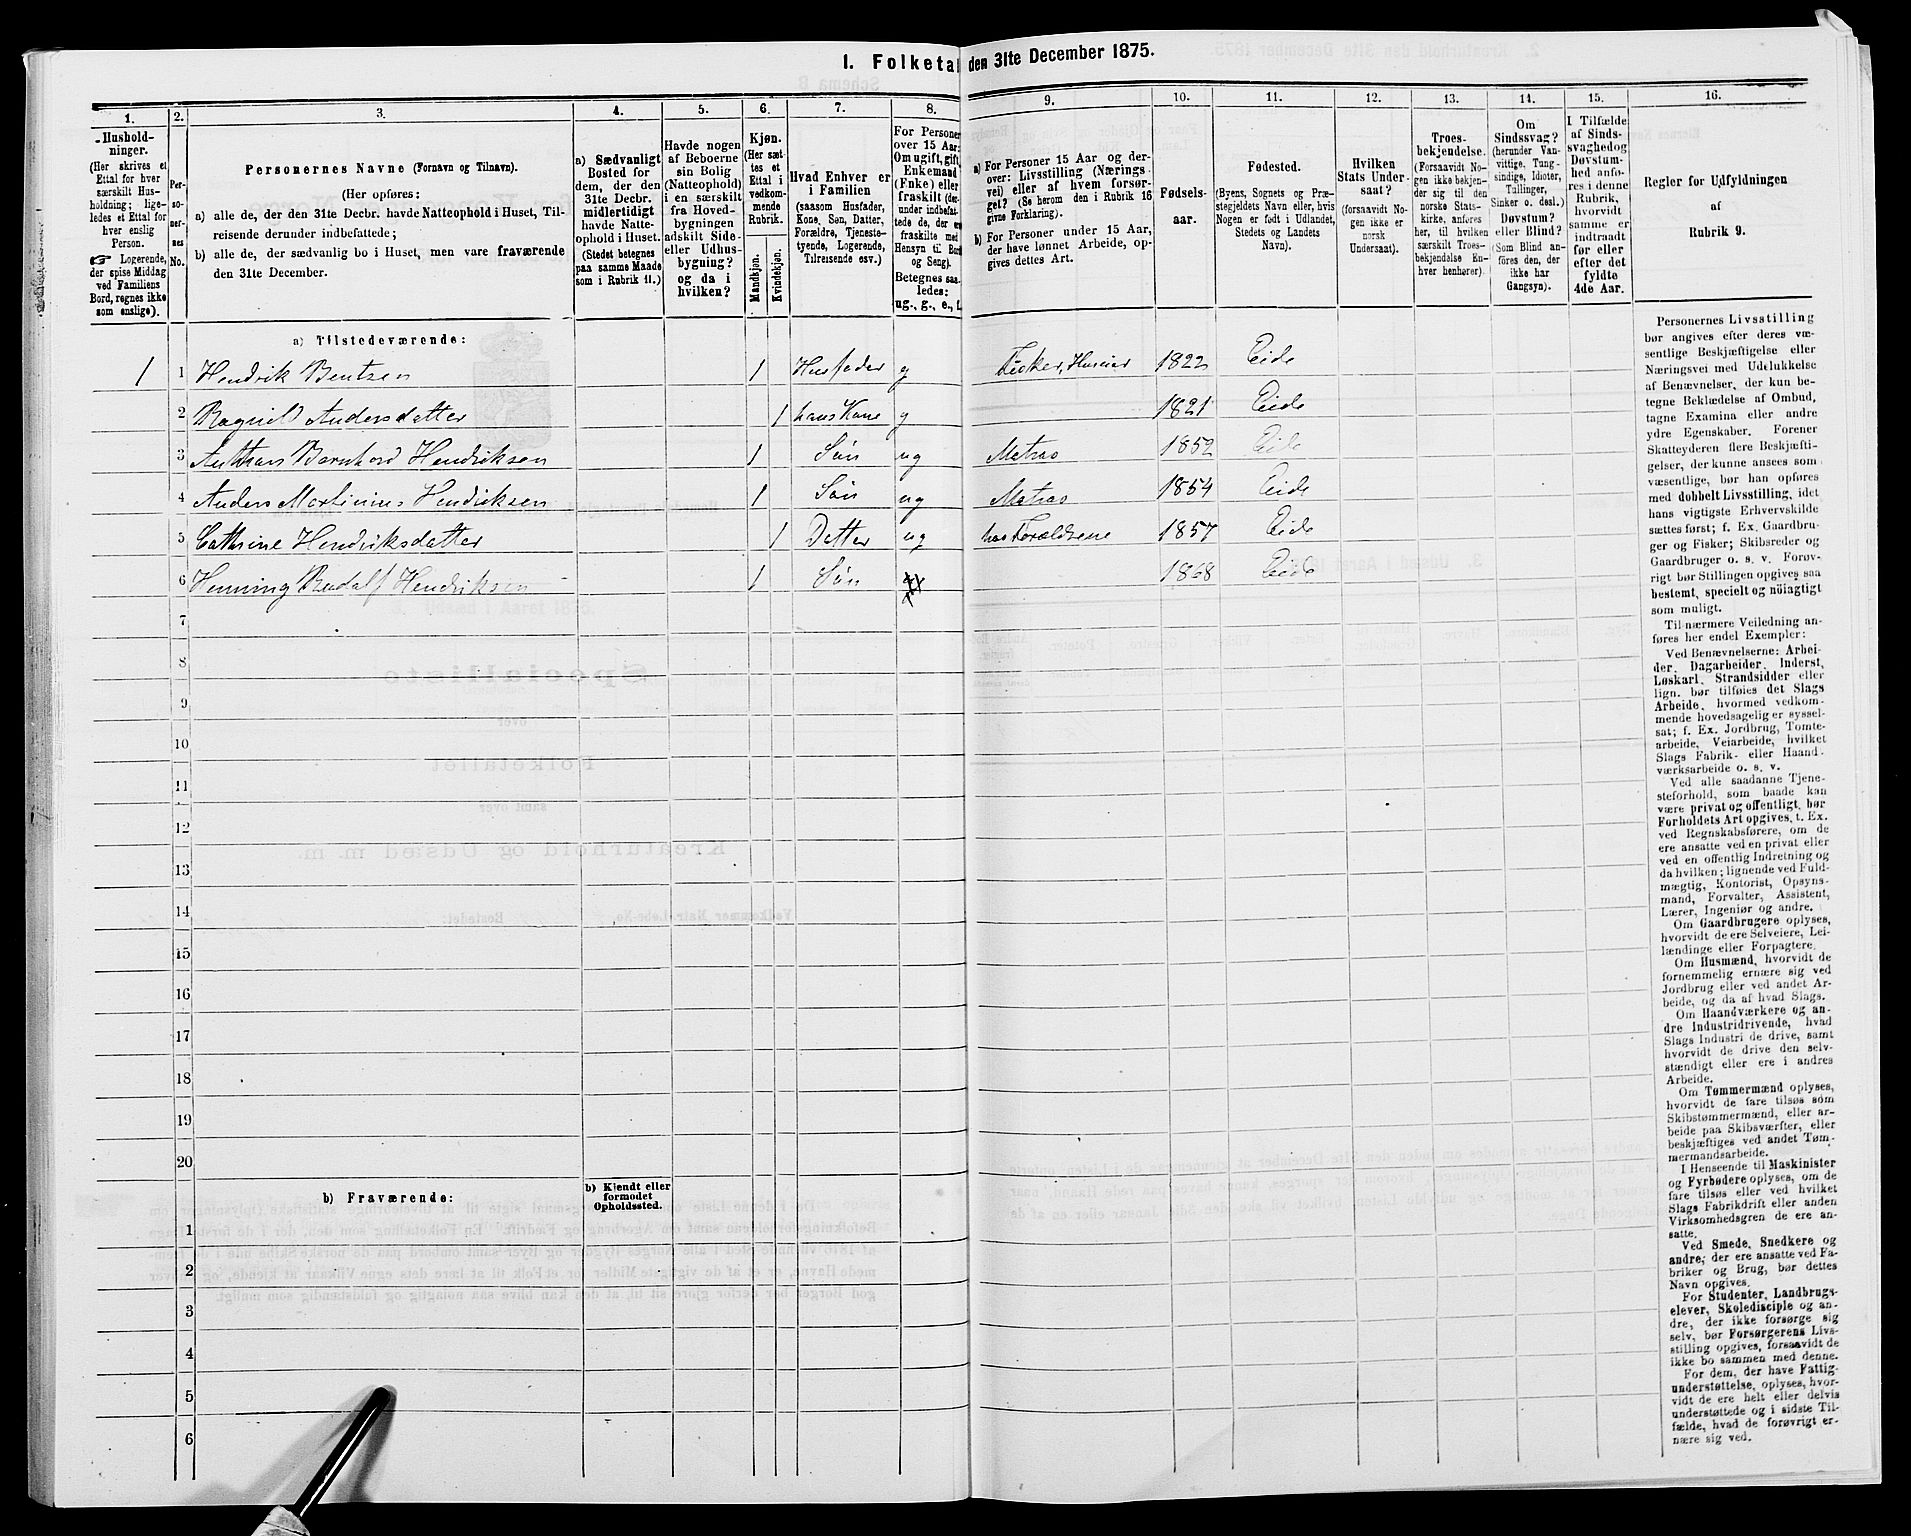 I. Folketal den 31te December 1875.
1. 2. 3. 4. 5. 6. 7. 8. 9. 10. 11. 12. 13. 14. 15. 16.
Hushold-
ninger.
(Her skrives et
Ettal for hver
særskilt Hus-
holdning; lige-
ledes et Ettal for
hver enslig
Person.
Logerende,
der spise Middag
ved Familiens
Bord, regnes ikke
som enslige).
Per-
so-
ner-
nes
No.
Personernes Navne (Fornavn og Tilnavn).
(Her opføres:
a) alle de, der den 31te Decbr. havde Natteophold i Huset, Til-
reisende derunder indbefattede;
b) alle de, der sædvanlig bo i Huset, men vare fraværende
den 31te December.
a) Sædvanligt
Bosted for
dem, der den
31te Decbr.
midlertidigt
havde Natte-
ophold i Huset.
(Stedet betegnes
paa samme Maade
som i Rubrik 11.)
Havde nogen
af Beboerne
sin Bolig
(Natteophold)
i en særskilt
fra Hoved-
bygningen
adskilt Side-
eller Udhus-
bygning?
og da i
hvilken?
Kjøn.
(Her sæt-
tes et
Ettal i
vedkom-
mende
Rubrik.
Mandkjøn.
Kvindekjøn.
Hvad Enhver er
i Familien
(saasom Husfader,
Kone, Søn, Datter,
Forældre, Tjeneste-
tyende, Logerende,
Tilreisende osv.)
For Personer
over 15 Aar:
Om ugift, gift,
Enkemand
(Enke) eller
fraskilt (der-
under indbefat-
tede de, der ere
fraskilte med
Hensyn til Bord
og Seng).
Betegnes saa-
ledes:
ug., g., e., f.
a) For Personer 15 Aar og der-
over: Livsstilling (Nærings-
vei) eller af hvem forsør-
get? (Se herom den i Rubrik 16
givne Forklaring).
b) For Personer under 15 Aar,
der have lønnet Arbeide, op-
gives dettes Art.
Fødsels-
aar.
Fødested.
(Byens, Sognets og Præ-
stegjeldets Navn eller, hvis
Nogen er født i Udlandet,
Stedets og Landets
Navn).
Hvilken
Stats Under-
saat?
(forsaavidt No-
gen ikke er
norsk
Undersaat).
Troes-
bekjendelse.
(Forsaavidt No-
gen ikke bekjen-
der sig til den
norske Stats-
kirke, anføres
her, til hvilken
særskilt Troes-
bekjendelse En-
hver henhører).
Om
Sindssvag?
(herunder Van-
vittige, Tung-
sindige, Idioter,
Tullinger,
Sinker o. desl.)
Døvstum?
eller Blind?
(Som Blind an-
føres den, der
ikke har
Gangsyn).
I Tilfælde
af Sinds-
svaghed og
Døvstum-
hed anfø-
res i denne
Rubrik,
hvorvidt
samme er
indtraadt
før eller
efter det
fyldte
4de Aar.
Regler for Udfyldningen
af
Rubrik 9.
a) Tilstedeværende:
1 1 Hendrik Bentsen 1 Husfader g Fisker, Husmor 1822 Eide
2 Ragnild Andersdatter 1 hans Kone g 1821 Eide
3 Hendriksen 1 Søn ug Matros 1852 Eide
4 Anders Martinius Hendriksen 1 Søn ug Matros 1854 Eide
5 Cathrine Hendriksdatter 1 Datter ug hos Forældrene 1857 Eide
6 Henning Rudolf Hendriksen 1 Søn 1868 Eide
7
8
9
10
11
12
13
14
15
16
17
18
19
20
b) Fraværende:
b) Kjendt eller
formodet
Opholdssted.
1
2
3
4
5
6
Personernes Livsstilling
bør angives efter deres væ-
sentlige Beskjæftigelse eller
Næringsvei med Udelukkelse
af Benævnelser, der kun be-
tegne Beklædelse af Ombud,
tagne Examina eller andre
ydre Egenskaber. Forener
Skatteyderen flere Beskjæfti-
gelser, der kunne ansees som
væsentlige, bør han opføres
med dobbelt Livsstilling, idet
hans vigtigste Erhvervskilde
sættes først; f. Ex. Gaardbru-
ger og Fisker; Skibsreder og
Gaardbruger o. s. v. Forøv-
rigt bør Stillingen opgives saa
bestemt, specielt og nöiagtigt
som muligt.
Til nærmere Veiledning an-
føres her endel Exempler:
Ved Benævnelserne: Arbei-
der, Dagarbeider, Inderst,
Løskarl, Strandsidder eller
lign. bør tilføies det Slags
Arbeide, hvormed vedkom-
mende hovedsagelig er syssel-
sat; f. Ex. Jordbrug, Tomte-
arbeide, Veiarbeide, hvilket
Slags Fabrik- eller Haand-
værksarbeide o. s. v.
Ved alle saadanne Tjene-
steforhold, som baade kan
være privat og offentligt, bør
Forholdets Art opgives, t. Ex.
ved Regnskabsførere, om de
ere ansatte ved en privat eller
ved en offentlig Indretning og
da hvilken; lignende ved Fuld-
mægtig, Kontorist, Opsyns-
mand, Forvalter, Assistent,
Lærer, Ingeniør og andre.
Om Gaardbrugere oplyses,
hvorvidt de ere Selveiere, Lei-
lændinge eller Forpagtere.
Om Husmænd, hvorvidt de
fornemmelig ernære sig ved
Jordbrug eller ved andet Ar-
beide, og da af hvad Slags.
Om Haandværkere og an-
dre Industridrivende, hvad
Slags Industri de drive, samt
hvorvidt de drive den selv-
stændigt eller ere i andres
Arbeide.
Om Tømmermænd oplyses,
hvorvidt de fare tilsøs som
Skibstømmermænd, eller ar-
beide paa Skibsværfter, eller
beskjæftiges ved andet Tøm-
mermandsarbeide.
I Henseende til Maskinister
og Fyrbødere oplyses, om de
fare tilsøs eller ved hvilket
Slags Fabrikdrift eller anden
Virksomhedsgren de ere an-
satte.
Ved Smede, Snedkere og
andre, der ere ansatte ved Fa-
briker og Brug, bør dettes
Navn opgives.
For Studenter, Landbrugs-
elever, Skoledisciple og an-
dre, der ikke forsørge sig
selv, bør Forsørgerens Livs-
stilling opgives, forsaavidt de
ikke bo sammen med denne.
For dem, der have Fattig-
understøttelse, oplyses, hvor-
vidt de ere helt eller delvis
understøttede og i sidste Til-
fælde, hvad de forøvrigt er-
nære sig ved.